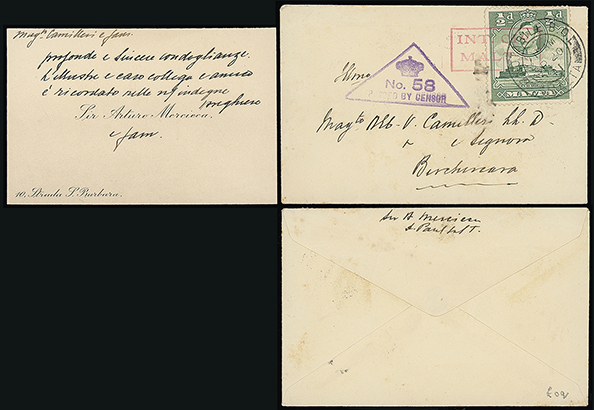 Mag.to Camilleri e fam.
profonde e sincere condoglianze.
L'illustre e caro collega e amico
è ricordato nelle
preghiere
Sir. Arturo Mercieca.
e fam.
10, Strada S. Barbara.
½d ½d
MALTA
No. 58
PASSED BY CENSOR
Illmo
Mag.to Alb. V. Camilleri LL. D.
e Signora
Birchircara
Sir A Mercieca